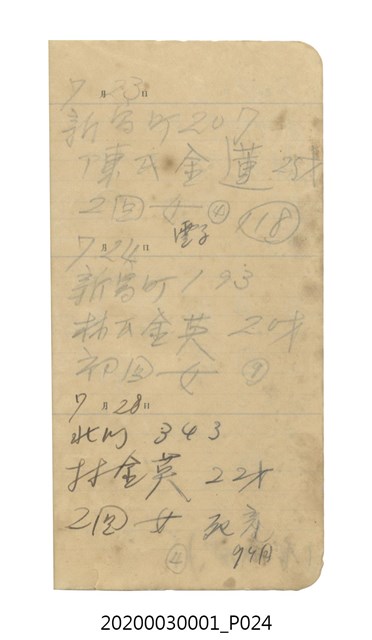 7月23日
新富町207
陳氏金蓮 25才
2回 女 ④ 118
7月24日
新富町193
林氏金英 20才
初回 女 ⑨
7月28日
北門 343
林金英 22才
2回 女 死亡
④ 9ヶ月
20200030001_P024